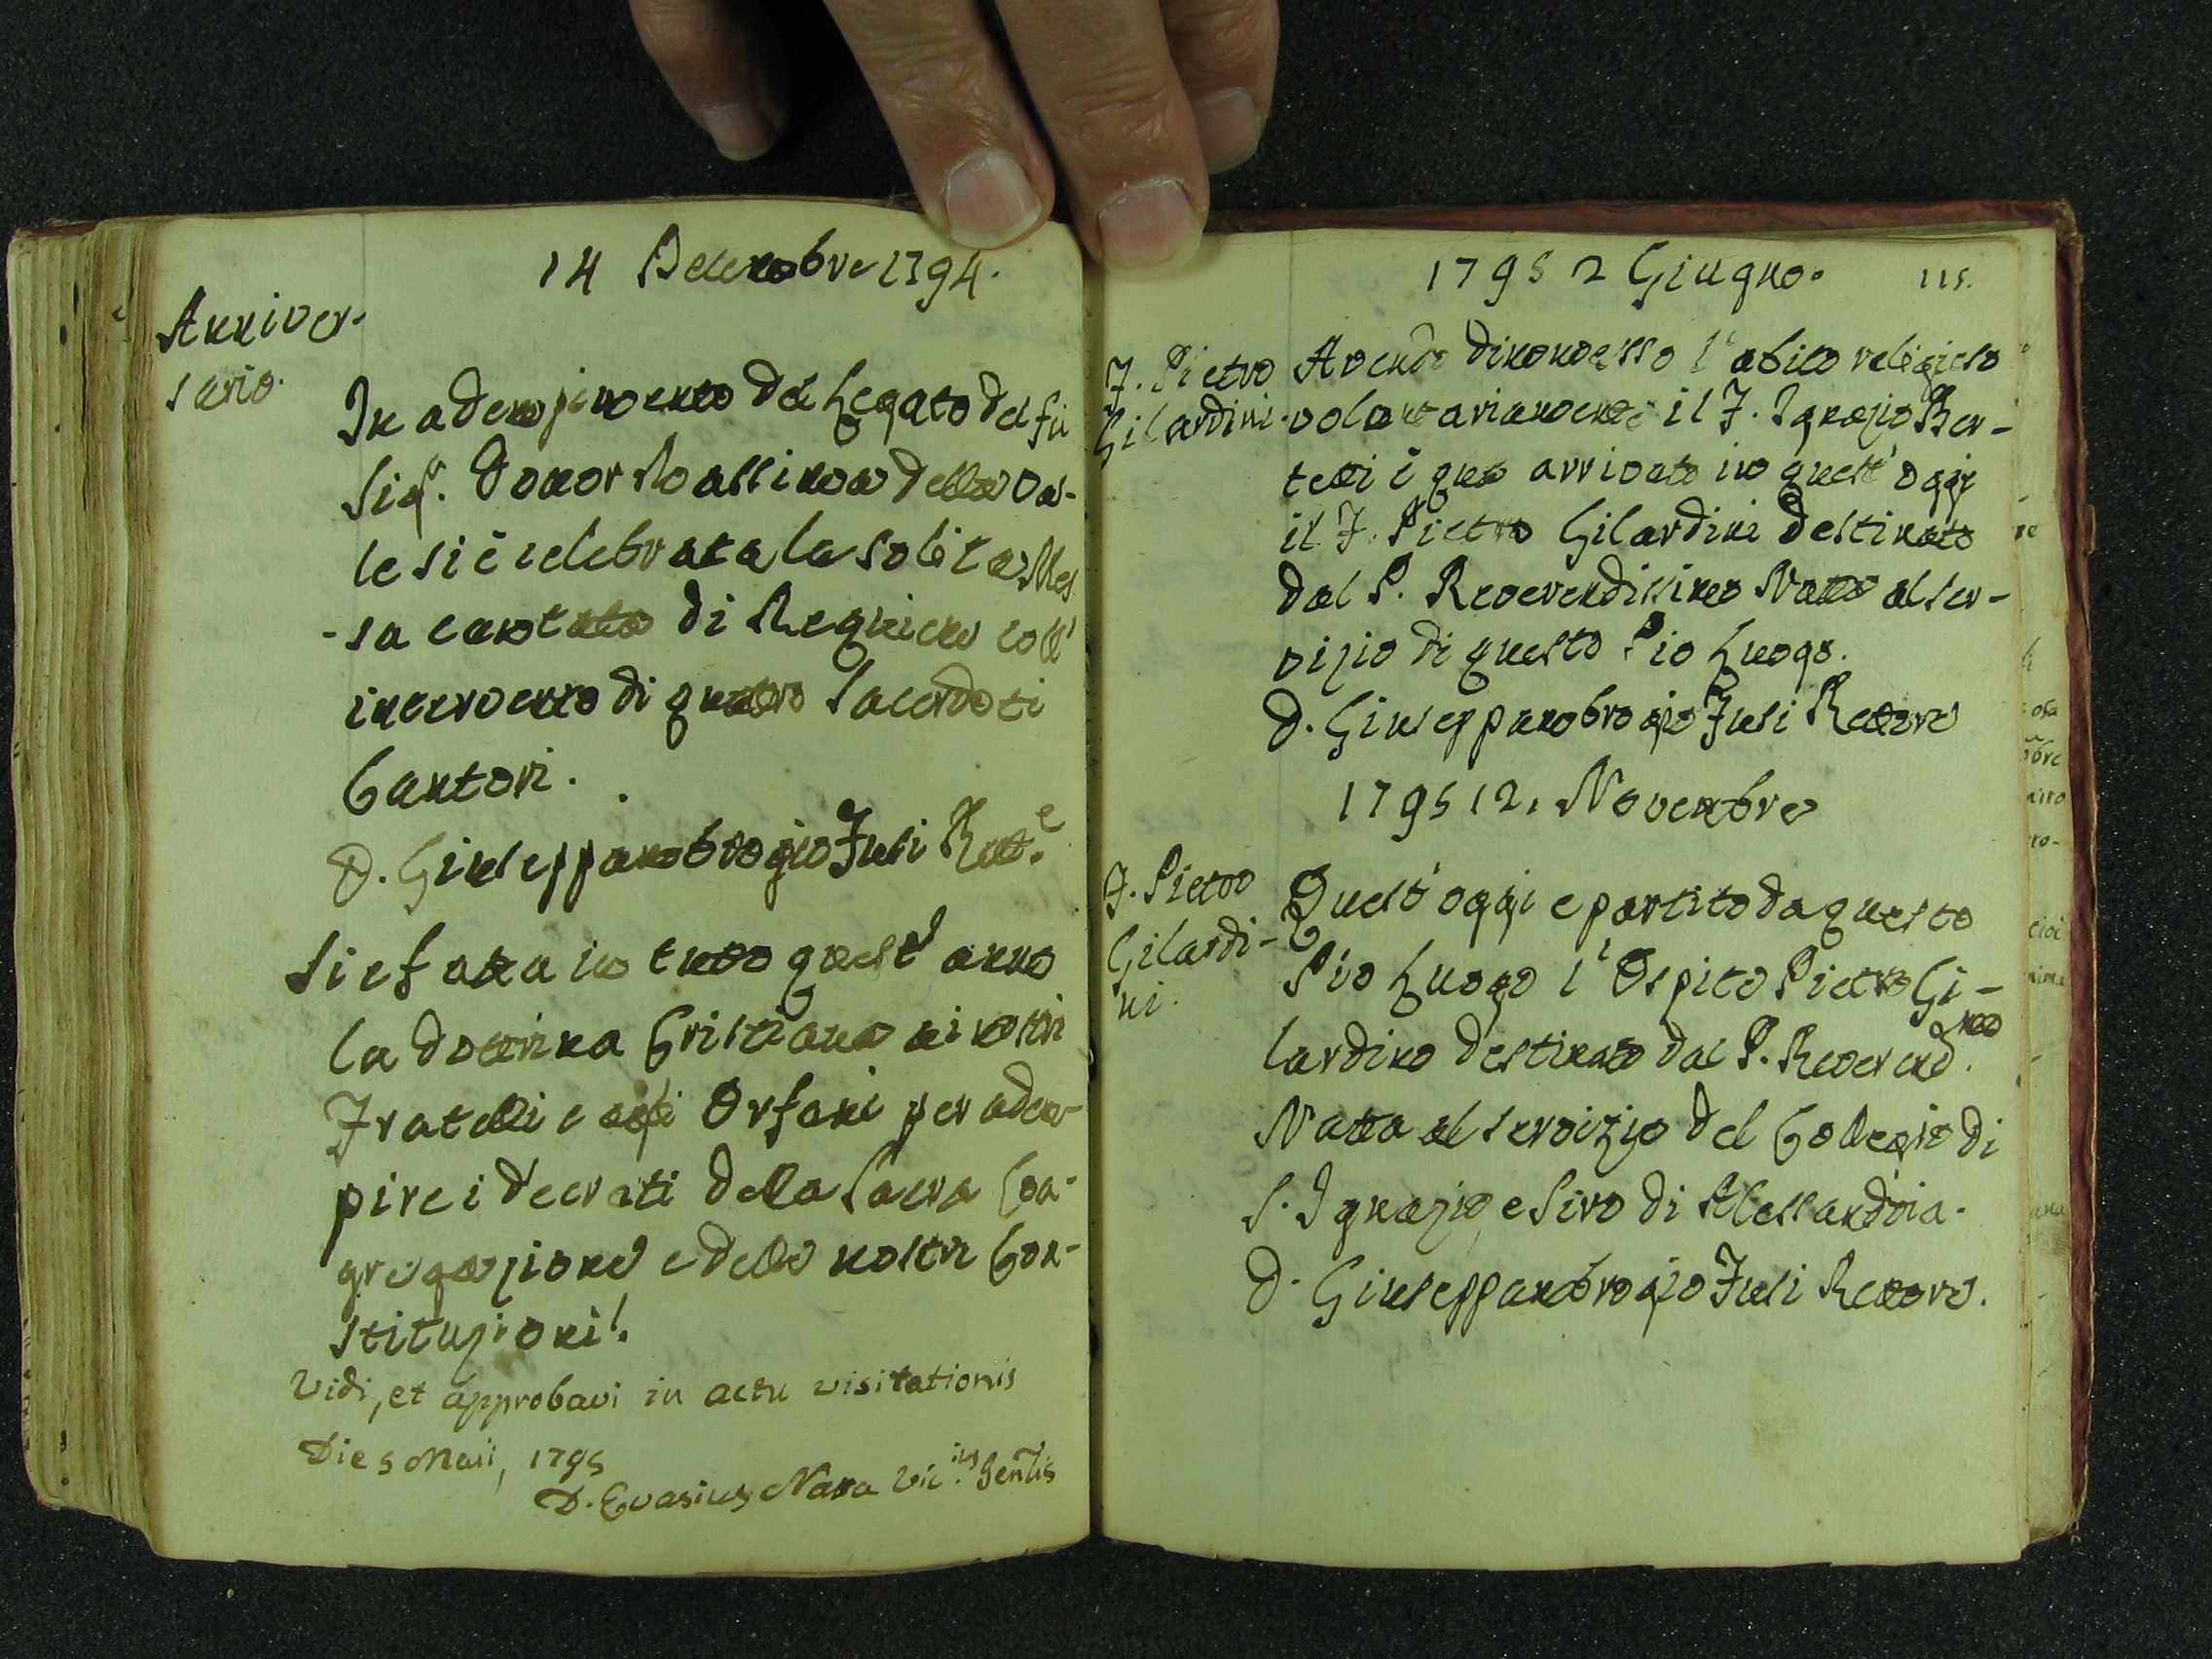 14 Decembre 1794.
Anniver-
sario.
In adempimento del Legato del fù
Sig.r Dottor Massimo della Va-
le si è celebrata la solita Mes
-sa cantata di Requiem coll'
intervento di quatro Sacerdoti
Cantori.
D. Giuseppambrogio Fusi Rett.e
Si è fatta in tutto quest' anno
la dottrina Cristiana ai nostri
Fratelli e agli Orfani per adem-
pire i decreti della Sacra Con-
gregazione e delle nostre Con-
stituzioni.
Vidi, et approbavi in actu visitationis
Die 5 Maii, 1795
D. Evasius Natta Vic.ius Gen̄lis
1795 2 Giugno.
115.
F. Pietro
Gilardini.
Avendo dimmesso l'abito religioso
volontariamente il F. Ignazio Ber-
tetti è quà arrivato in quest'oggi
il F. Pietro Gilardini destinato
dal P. Reverendissimo Natta al ser-
vizio di questo Pio Luogo.
D. Giuseppambrogio Fusi Rettore
1795 12. Novembre
F. Pietro
Gilardi-
ni.
Quest'oggi e partito da questo
Pio Luogo l'Ospite Pietro Gi-
lardino destinato dal P. Reverend.mo
Natta al servizio del Collegio di
S. Ignazio, e Siro di Alessandria.
D. Giuseppambrogio Fusi Rettore.